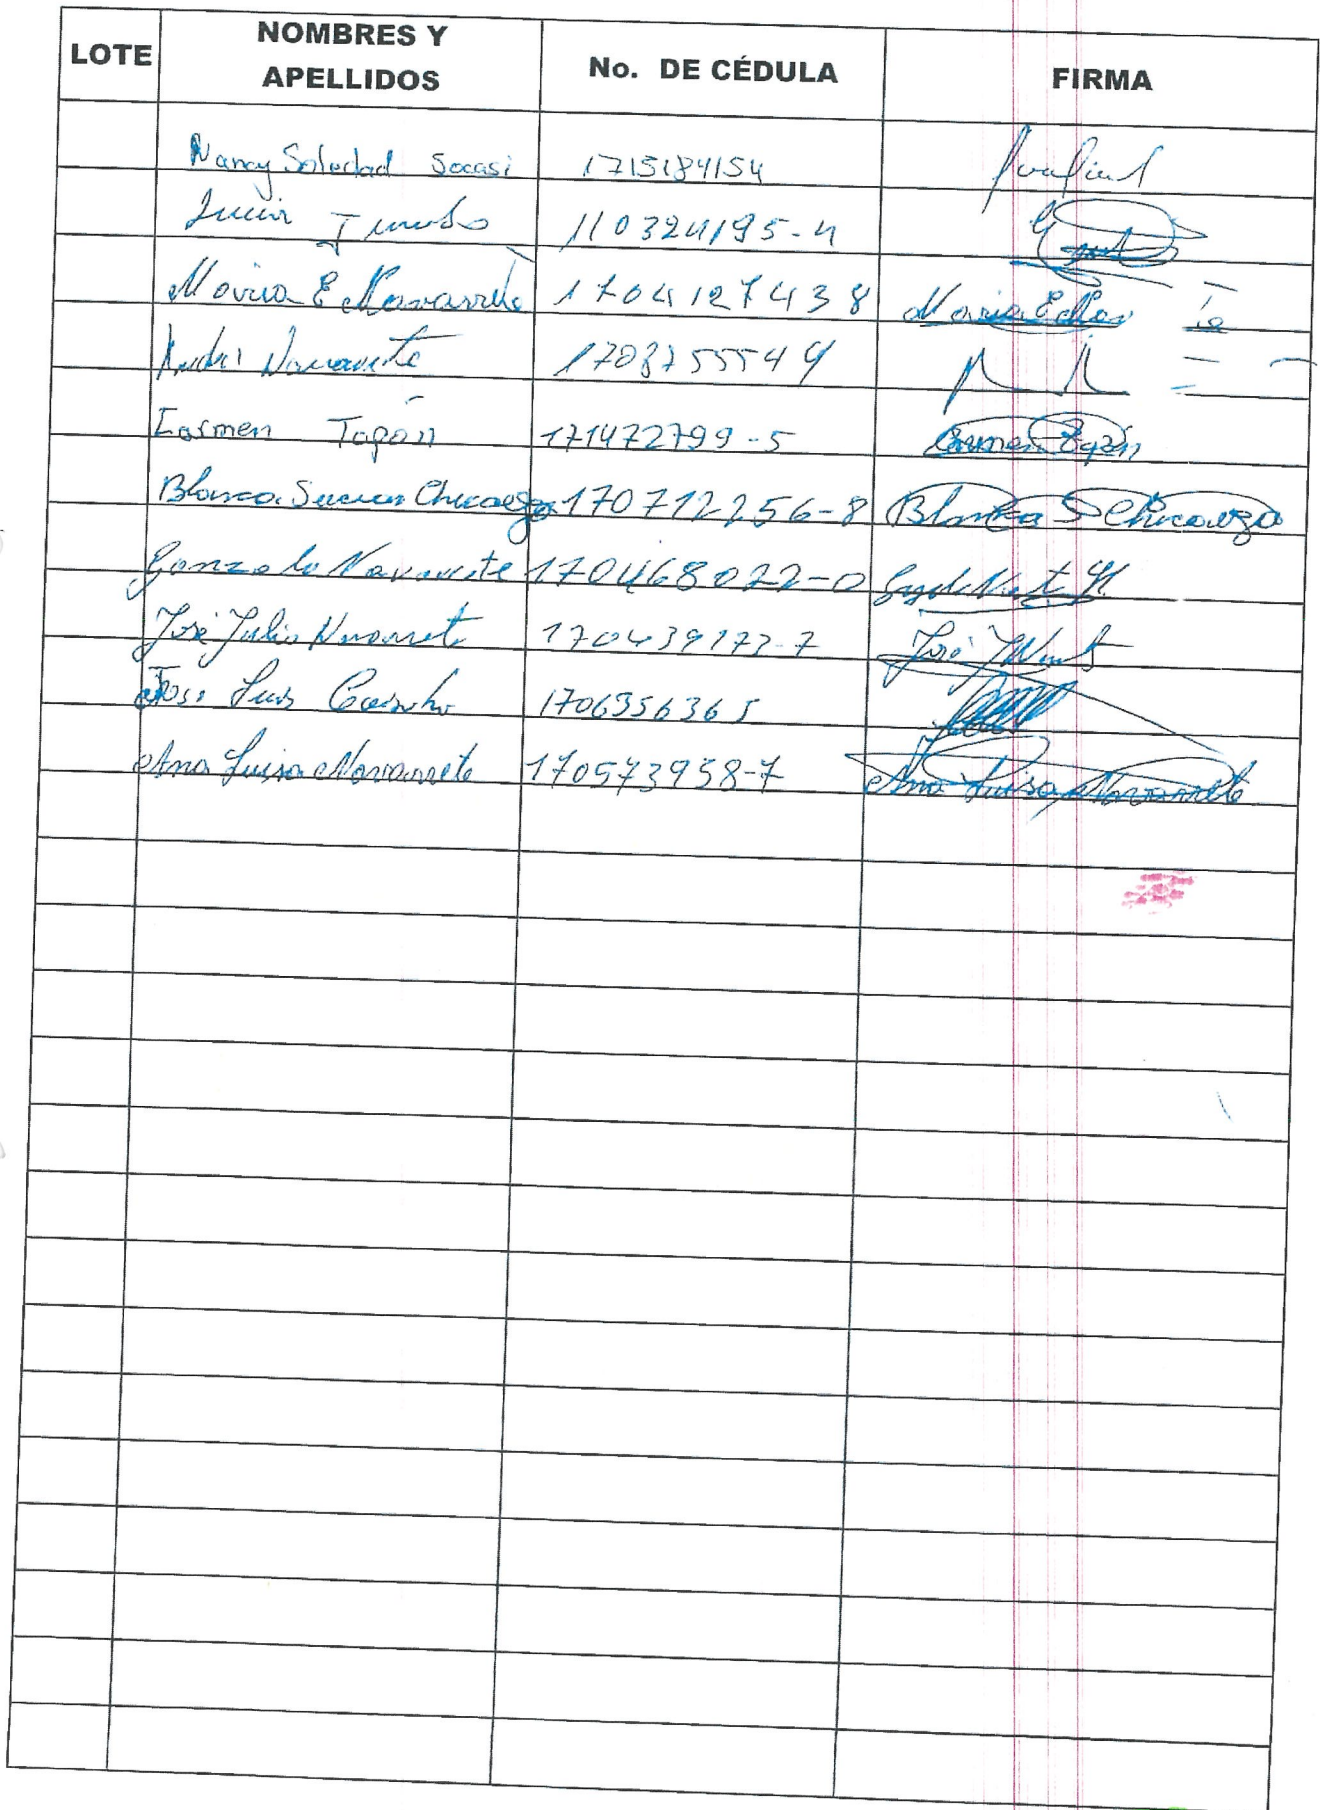 LOTE NOMBRES Y APELLIDOS No. DE CÉDULA FIRMA
Nancy Soledad Socasi 1715184154
110324195-4
Maria E Navarrete 1704127438 Maria E Nav
Navarrete 1708755549
Carmen Tapán 171472799-5 Carmen Tapán
Blanca Chicaiza 170712256-8 Blanca S Chicaiza
Gonzalo Navarrete 170468022-0
José Julio Navarrete 170439173-7 José
José Luis 1706356365
Ana Luisa Navarrete 170573958-7 Ana Luisa Navarrete